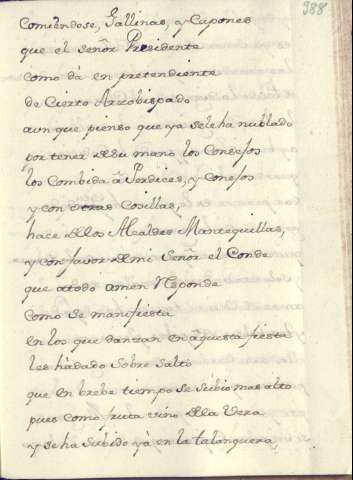 388
Comiendose, Gallinas, y Capones
que el señor Presidente
como dà en pretendiente
de Cierto Arzobispado
aun que pienso que ya sele ha nublado
por tener desu mano los Consejos
los Combida â Perdices, y Conejos
y con otras Cosillas,
hace delos Alcaldes Mantequillas,
y con favor demi Señor el Conde
que atodo amen Responde
como se manifiesta
en los que danzan en aquesta fiesta
les hà dado sobre salto
que en brebe tiempo se subio mas alto
pues como fruta vino dela Vera
y se ha subido yà en la talanquera,